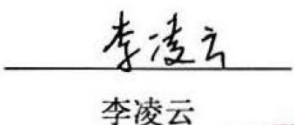 李凌云
李凌云